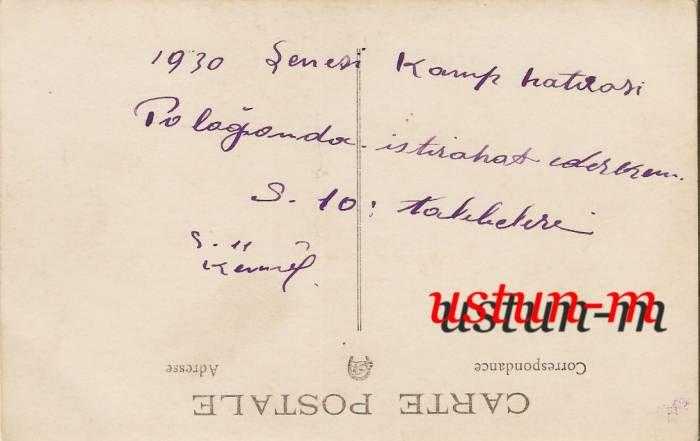 1930 Senesi Kamp hatırasi
Poloğonda istirahat ederken.
S. 10: talebeleri
S. 11
Kemâl
ustun-m
Correspondance
Adresse
CARTE POSTALE